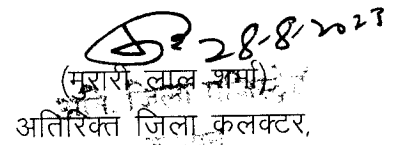 28-8-2023
(मुरारी लाल शर्मा)
अतिरिक्त जिला कलक्टर,